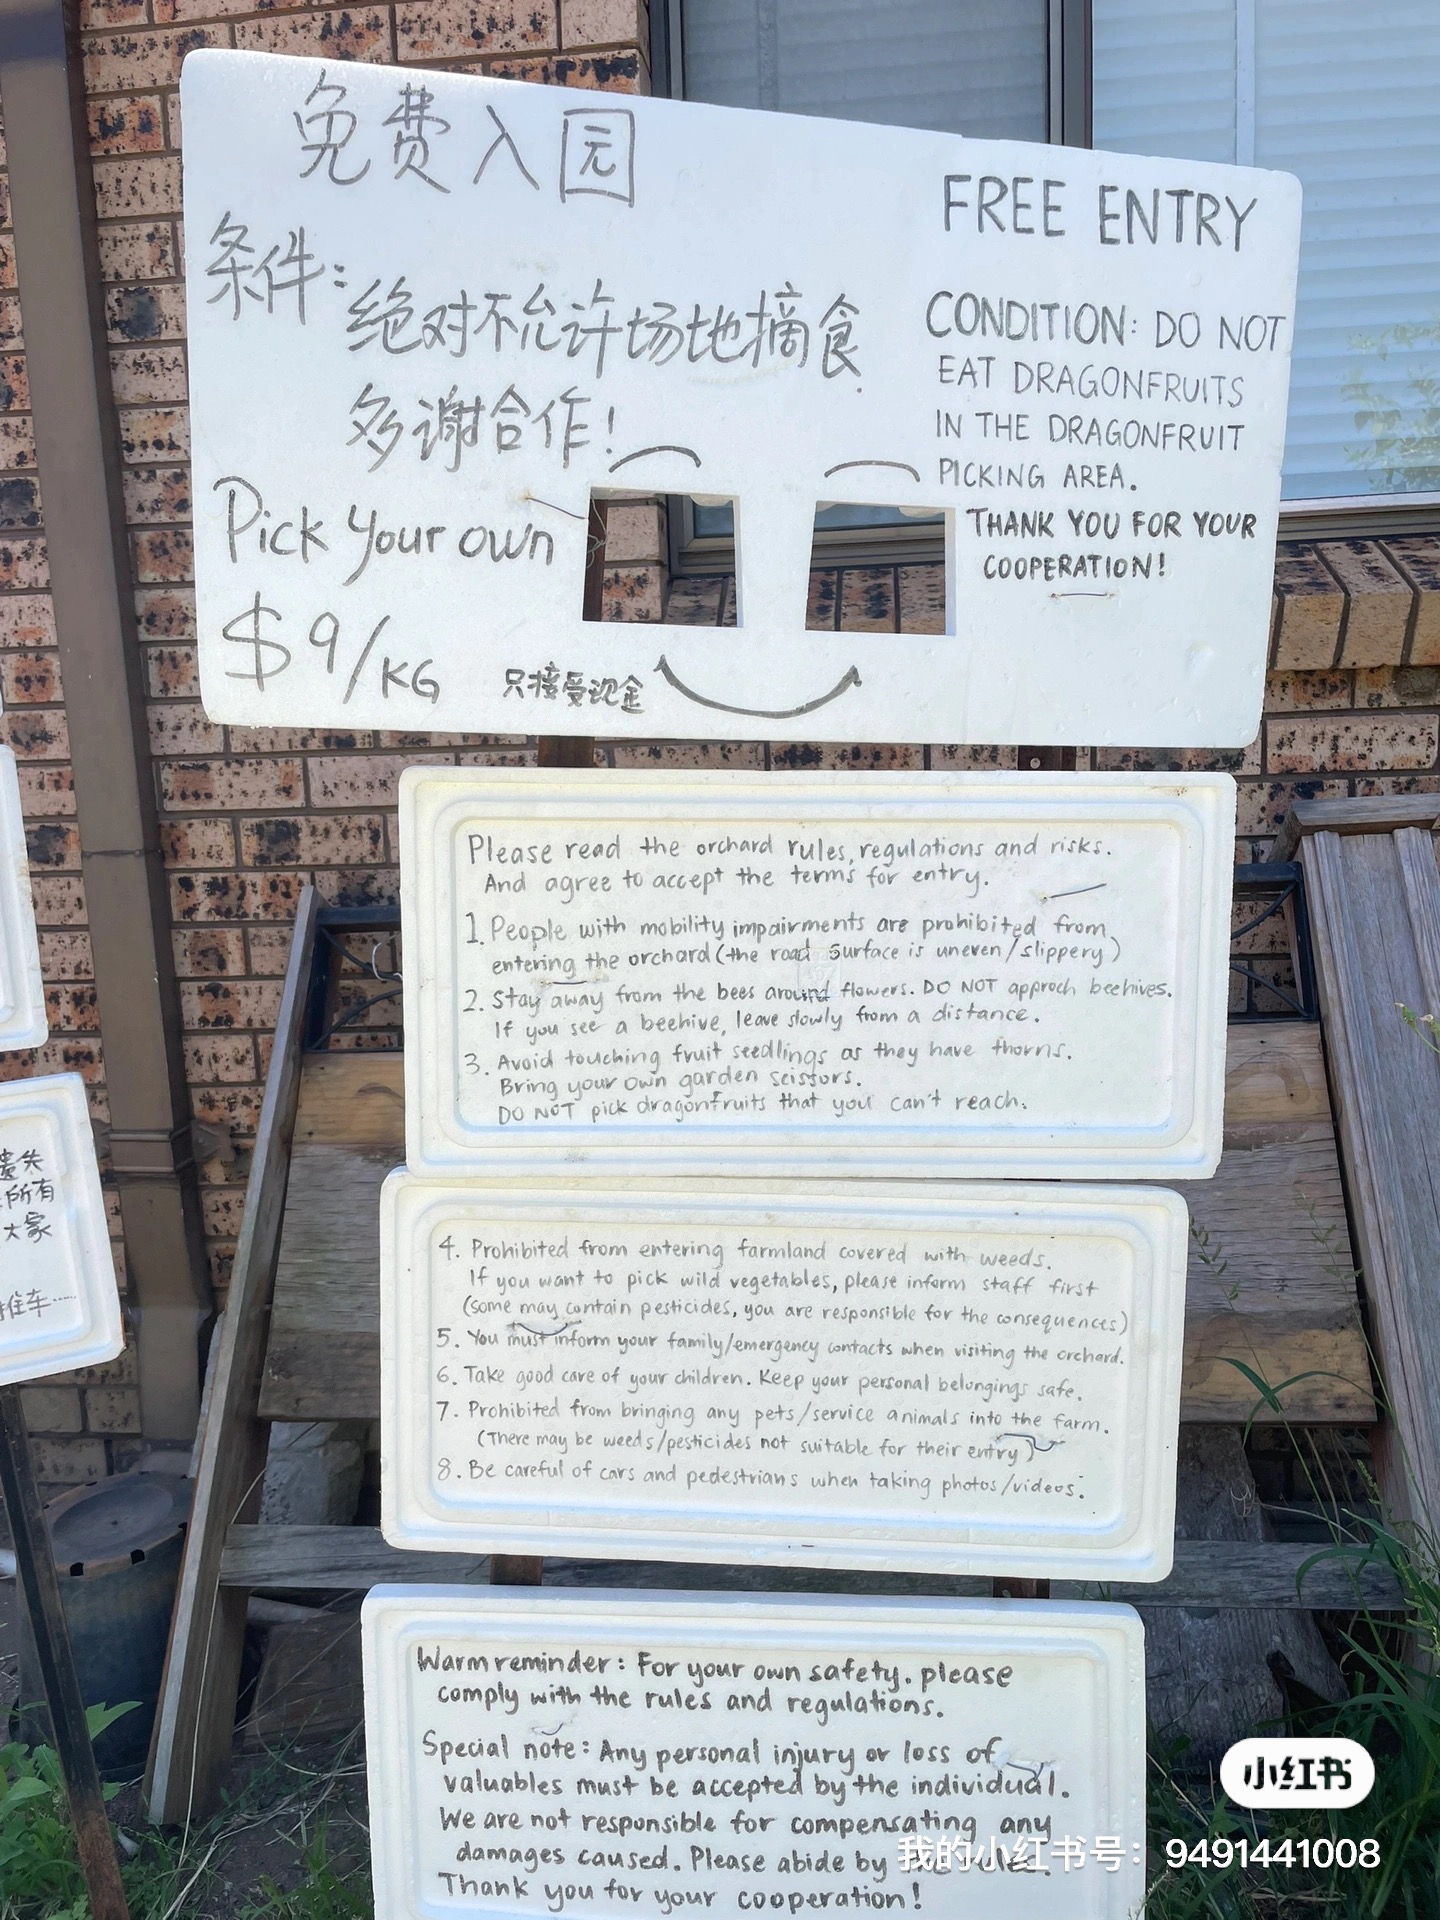 免费入园
条件:绝对不允许场地摘食
多谢合作!
Pick your own
$9/KG
只接受现金
FREE ENTRY
CONDITION: DO NOT
EAT DRAGONFRUITS
IN THE DRAGONFRUIT
PICKING AREA.
THANK YOU FOR YOUR
COOPERATION!
Please read the orchard rules, regulations and risks.
And agree to accept the terms for entry.
1. People with mobility impairments are prohibited from
entering the orchard (the road surface is uneven/slippery)
2. Stay away from the bees around flowers. DO NOT approch beehives.
If you see a beehive, leave slowly from a distance.
3. Avoid touching fruit seedlings as they have thorns.
Bring your own garden scissors.
DO NOT pick dragonfruits that you can't reach.
4. Prohibited from entering farmland covered with weeds.
If you want to pick wild vegetables, please inform staff first
(some may contain pesticides, you are responsible for the consequences)
5. You must inform your family/emergency contacts when visiting the orchard.
6. Take good care of your children. Keep your personal belongings safe.
7. Prohibited from bringing any pets/service animals into the farm.
(There may be weeds/pesticides not suitable for their entry)
8. Be careful of cars and pedestrians when taking photos/videos.
Warm reminder: For your own safety. please
comply with the rules and regulations.
Special note: Any personal injury or loss of
valuables must be accepted by the individual.
We are not responsible for compensating any
damages caused. Please abide by
Thank you for your cooperation!
遗失
所有
大家
推车......
小红书
我的小红书号：9491441008